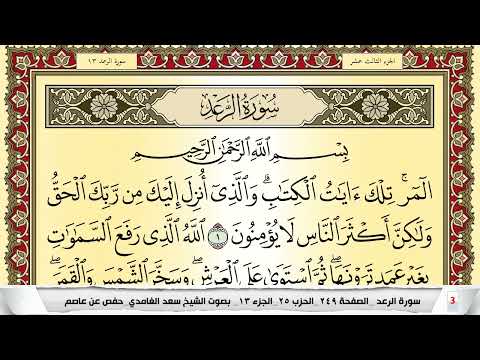 الجزء الثالث عشر
سورة الرعد ١٣
سُورَةُ الرَّعْدِ
بِسْمِ اللَّهِ الرَّحْمَٰنِ الرَّحِيمِ
الٓمٓرۚ تِلْكَ ءَايَٰتُ ٱلْكِتَٰبِۗ وَٱلَّذِىٓ أُنزِلَ إِلَيْكَ مِن رَّبِّكَ ٱلْحَقُّ
وَلَٰكِنَّ أَكْثَرَ ٱلنَّاسِ لَا يُؤْمِنُونَ ١ ٱللَّهُ ٱلَّذِى رَفَعَ ٱلسَّمَٰوَٰتِ
بِغَيْرِ عَمَدٍ تَرَوْنَهَاۖ ثُمَّ ٱسْتَوَىٰ عَلَى ٱلْعَرْشِۖ وَسَخَّرَ ٱلشَّمْسَ وَٱلْقَمَرَۖ
سورة الرعد _ الصفحة ٢٤٩ _ الحزب ٢٥ _ الجزء ١٣ _ بصوت الشيخ سعد الغامدي _ حفص عن عاصم
3